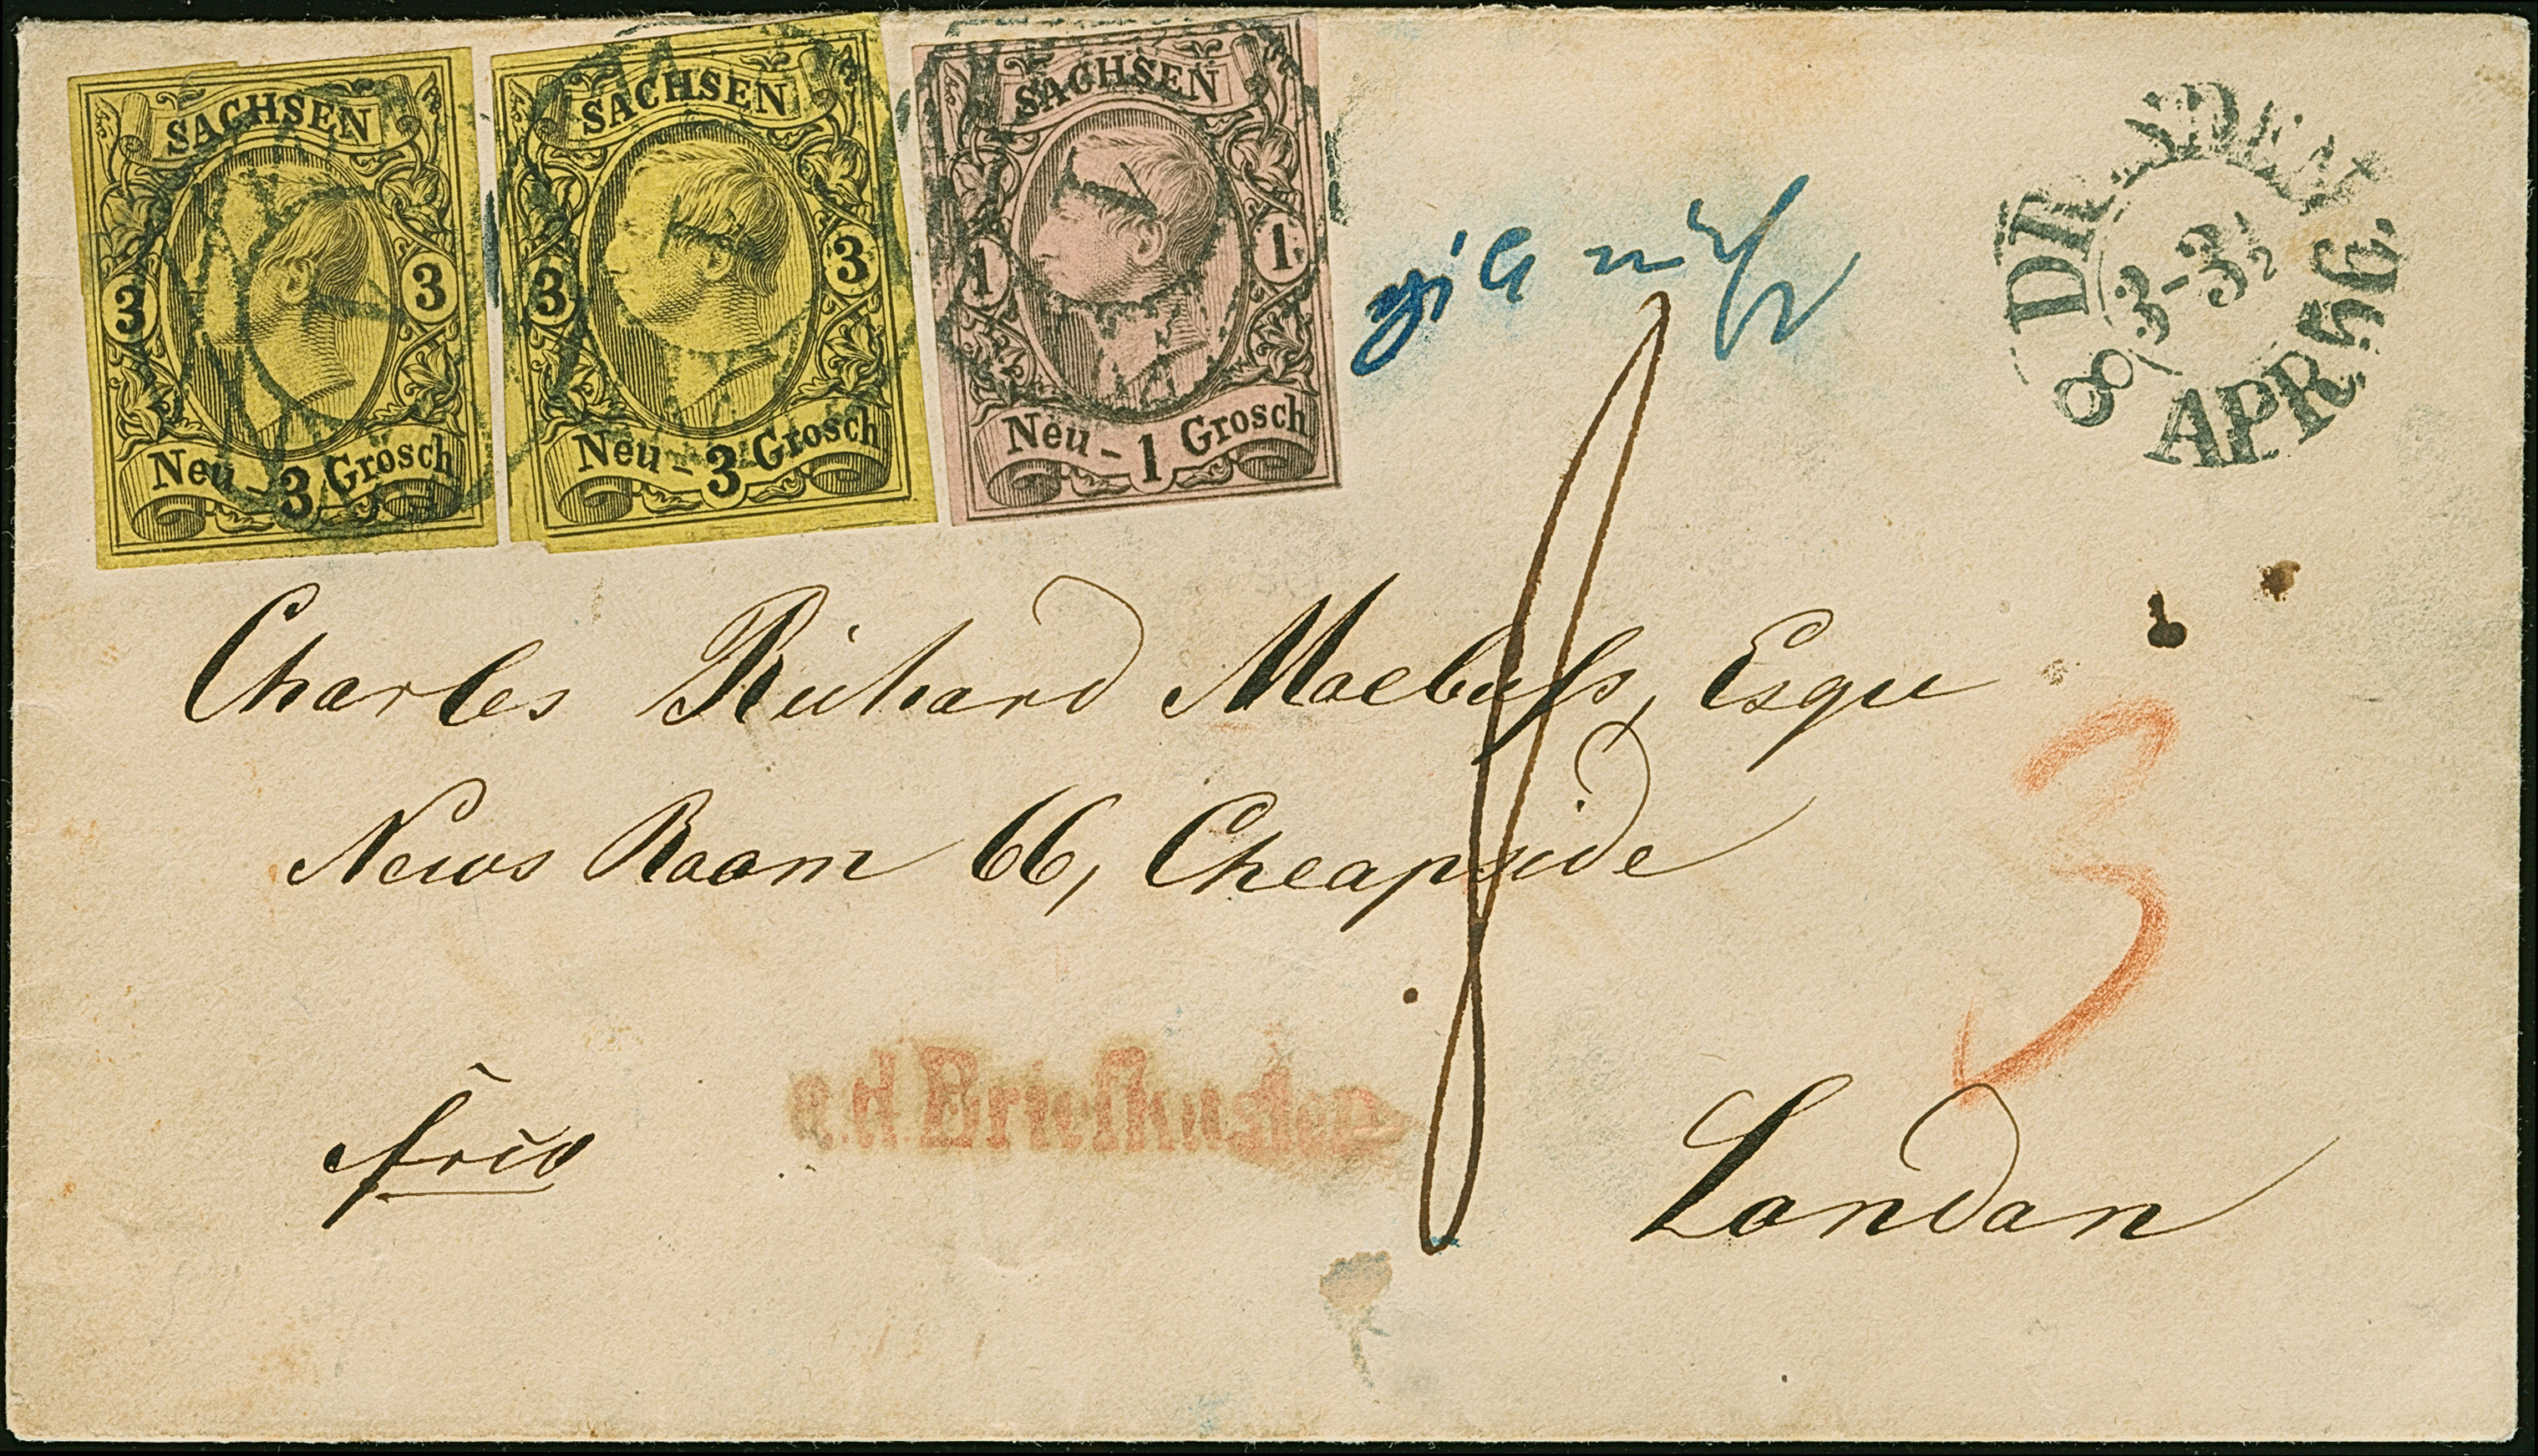 SACHSEN
3 3
Neu - 3 Grosch
SACHSEN
3 3
Neu - 3 Grosch
SACHSEN
1 1
Neu - 1 Grosch
DRESDEN
3-3½
8 APR 56.
Charles Richard Moebuſs, Esqu
News Room 66, Cheapside
3
frco
London